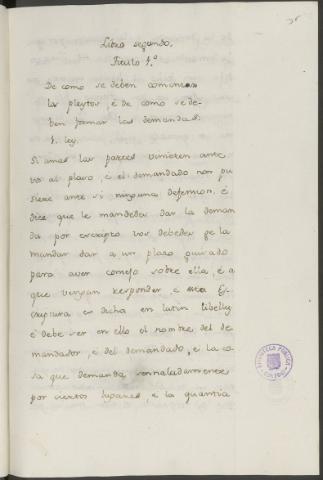 Libro segundo.
Titulo 1.º
De como se deben comenzar
los pleytos, é de como se de-
ben formar las demandas.
1. ley.
Si amas las partes vinieren ante
vos al plazo, é el demandado non pu
siere ante si ninguna defension, é
dice que le mandedes dar la deman
da por escripto vos debedes ge la
mandar dar a un plazo guisado
para aver consejo sobre ella, é a
que vengan responder, é esta Es-
criptura es dicha en latin libellus
é debe ser en ello el nombre del de
mandador, é del demandado, é la co-
sa que demanda sennaladamente
por ciertos lugares, é la quantia
BIBLIOTECA PUBLICA
TOLEDO